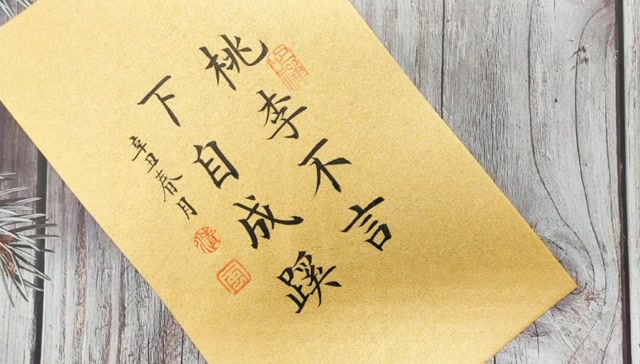 桃李不言
下自成蹊
辛丑春月